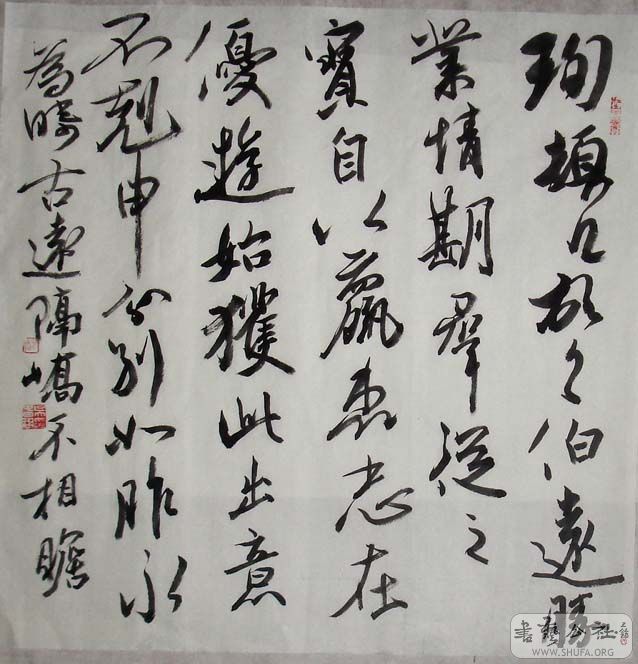 珣頓首頓首伯遠勝
業情期羣從之
寶自以羸患志在
優遊始獲此出意
不剋申分別如昨永
為疇古遠隔嶠不相瞻
書藝公社
WWW.SHUFA.ORG